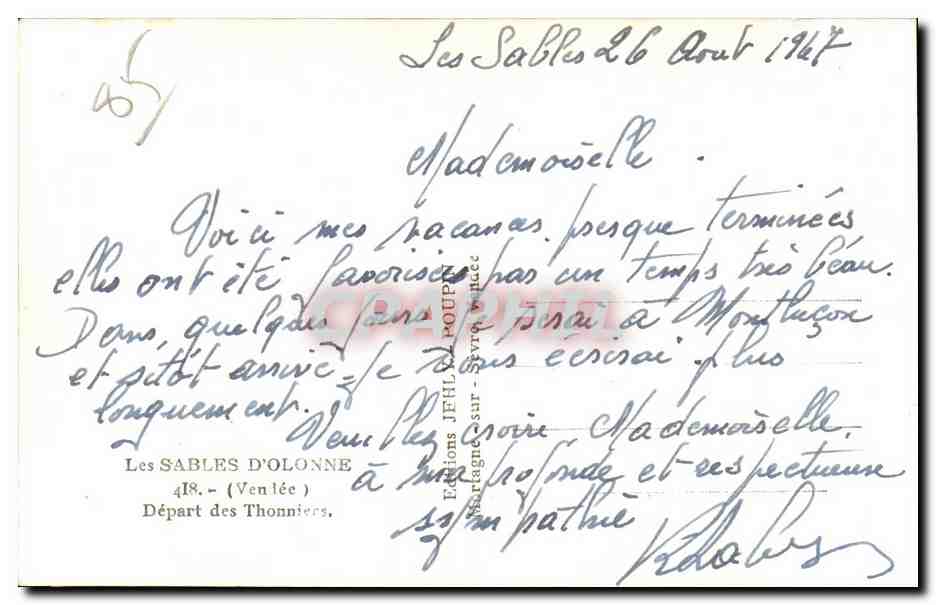 85
Les Sables 26 Août 1947
Mademoiselle.
Voici mes vacances presque terminées
elles ont été favorisées par un temps très beau.
Dans quelques jours je serai à Montluçon
et sitôt arrivé je vous écrirai plus
longuement.
Veuillez croire, Mademoiselle,
à ma profonde et respectueuse
sympathie
Les SABLES D'OLONNE
418. - (Vendée)
Départ des Thonniers.
Editions JEHLY-POUPIN
Mortagne-sur-Sèvre, Vendée